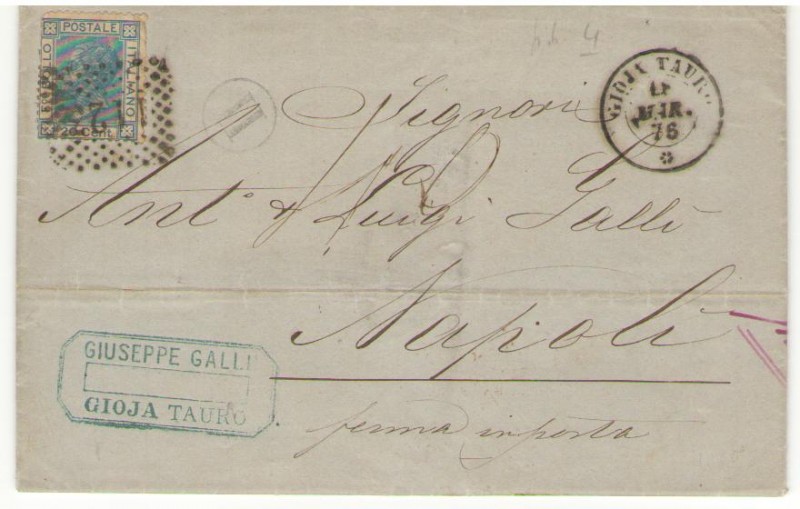 POSTALE
ITALIANO
20 Cent
GIOJA TAURO
MAR.
76
Signori
Ant.° & Luigi Galli
Napoli
ferma in posta
GIUSEPPE GALLI
GIOJA TAURO